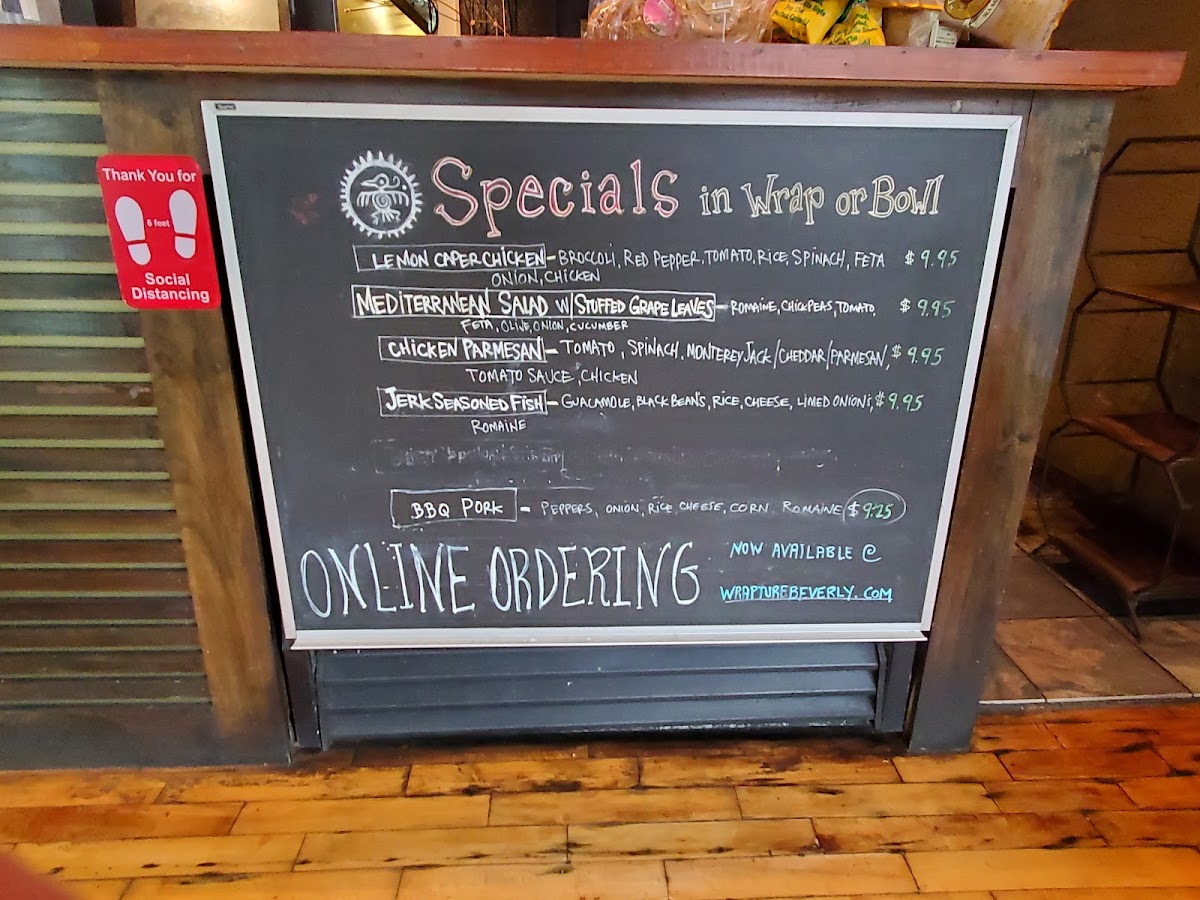 Thank You for
6 feet
Social
Distancing
Specials in Wrap or Bowl
LEMON CAPER CHICKEN - BROCCOLI, RED PEPPER, TOMATO, RICE, SPINACH, FETA $9.95
ONION, CHICKEN
MEDITERRANEAN SALAD W/ STUFFED GRAPE LEAVES - ROMAINE, CHICKPEAS, TOMATO, $9.95
FETA, OLIVE, ONION, CUCUMBER
CHICKEN PARMESAN - TOMATO, SPINACH, MONTEREY JACK/CHEDDAR/PARMESAN, $9.95
TOMATO SAUCE, CHICKEN
JERK SEASONED FISH - GUACAMOLE, BLACK BEANS, RICE, CHEESE, LIMED ONIONS, $9.95
ROMAINE
BBQ PORK - PEPPERS, ONION, RICE, CHEESE, CORN, ROMAINE $9.25
ONLINE ORDERING NOW AVAILABLE @
WRAPTUREBEVERLY.COM